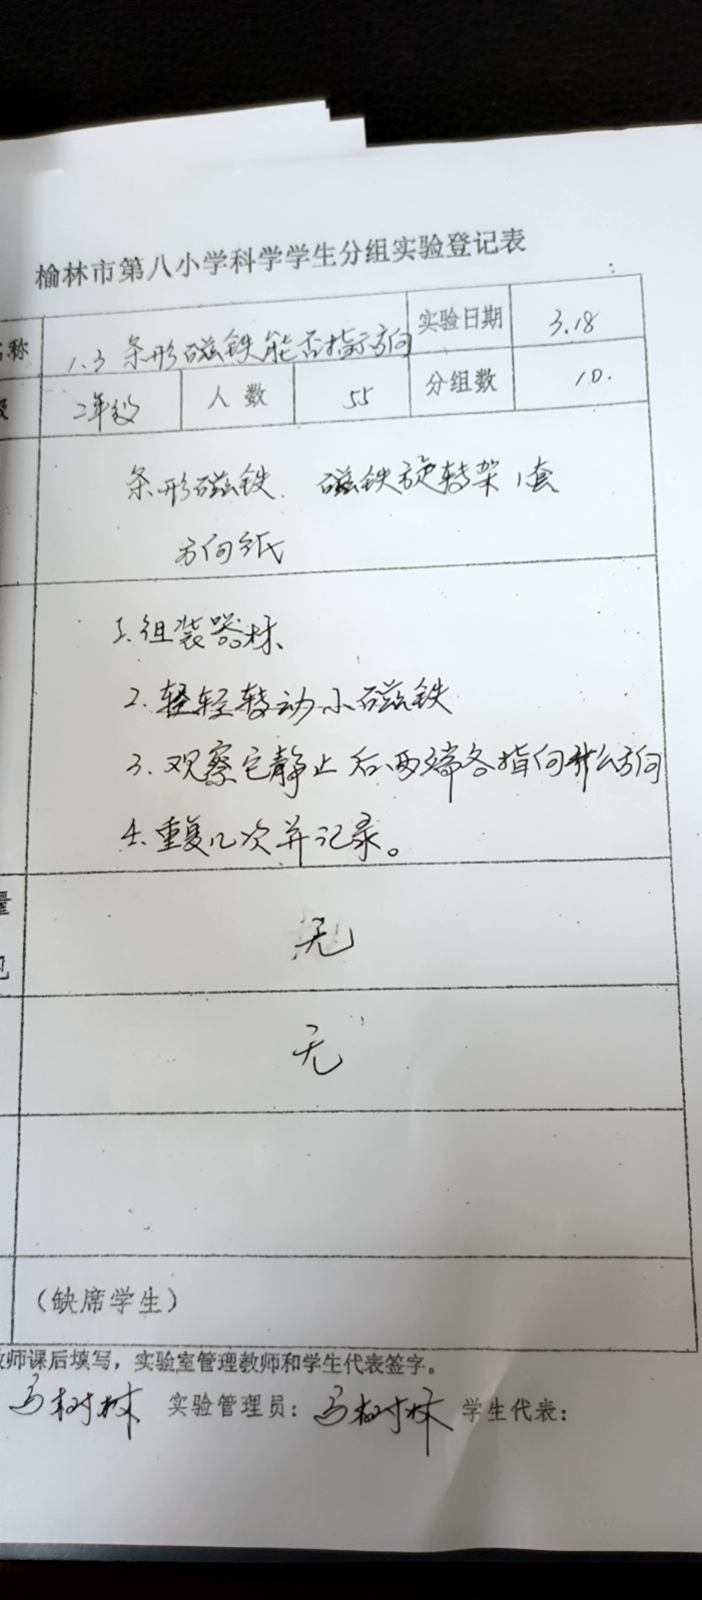 榆林市第八小学科学学生分组实验登记表
名称 1.3 条形磁铁能否指示方向 实验日期 3.18
级 2年级 人数 55 分组数 10.
条形磁铁、磁铁旋转架1套
方向纸
1.组装器材、
2.轻轻转动小磁铁
3.观察它静止后两端各指向什么方向
4.重复几次并记录。
量
况
无
无
(缺席学生)
教师课后填写，实验室管理教师和学生代表签字。
马树林 实验管理员：马树林 学生代表：